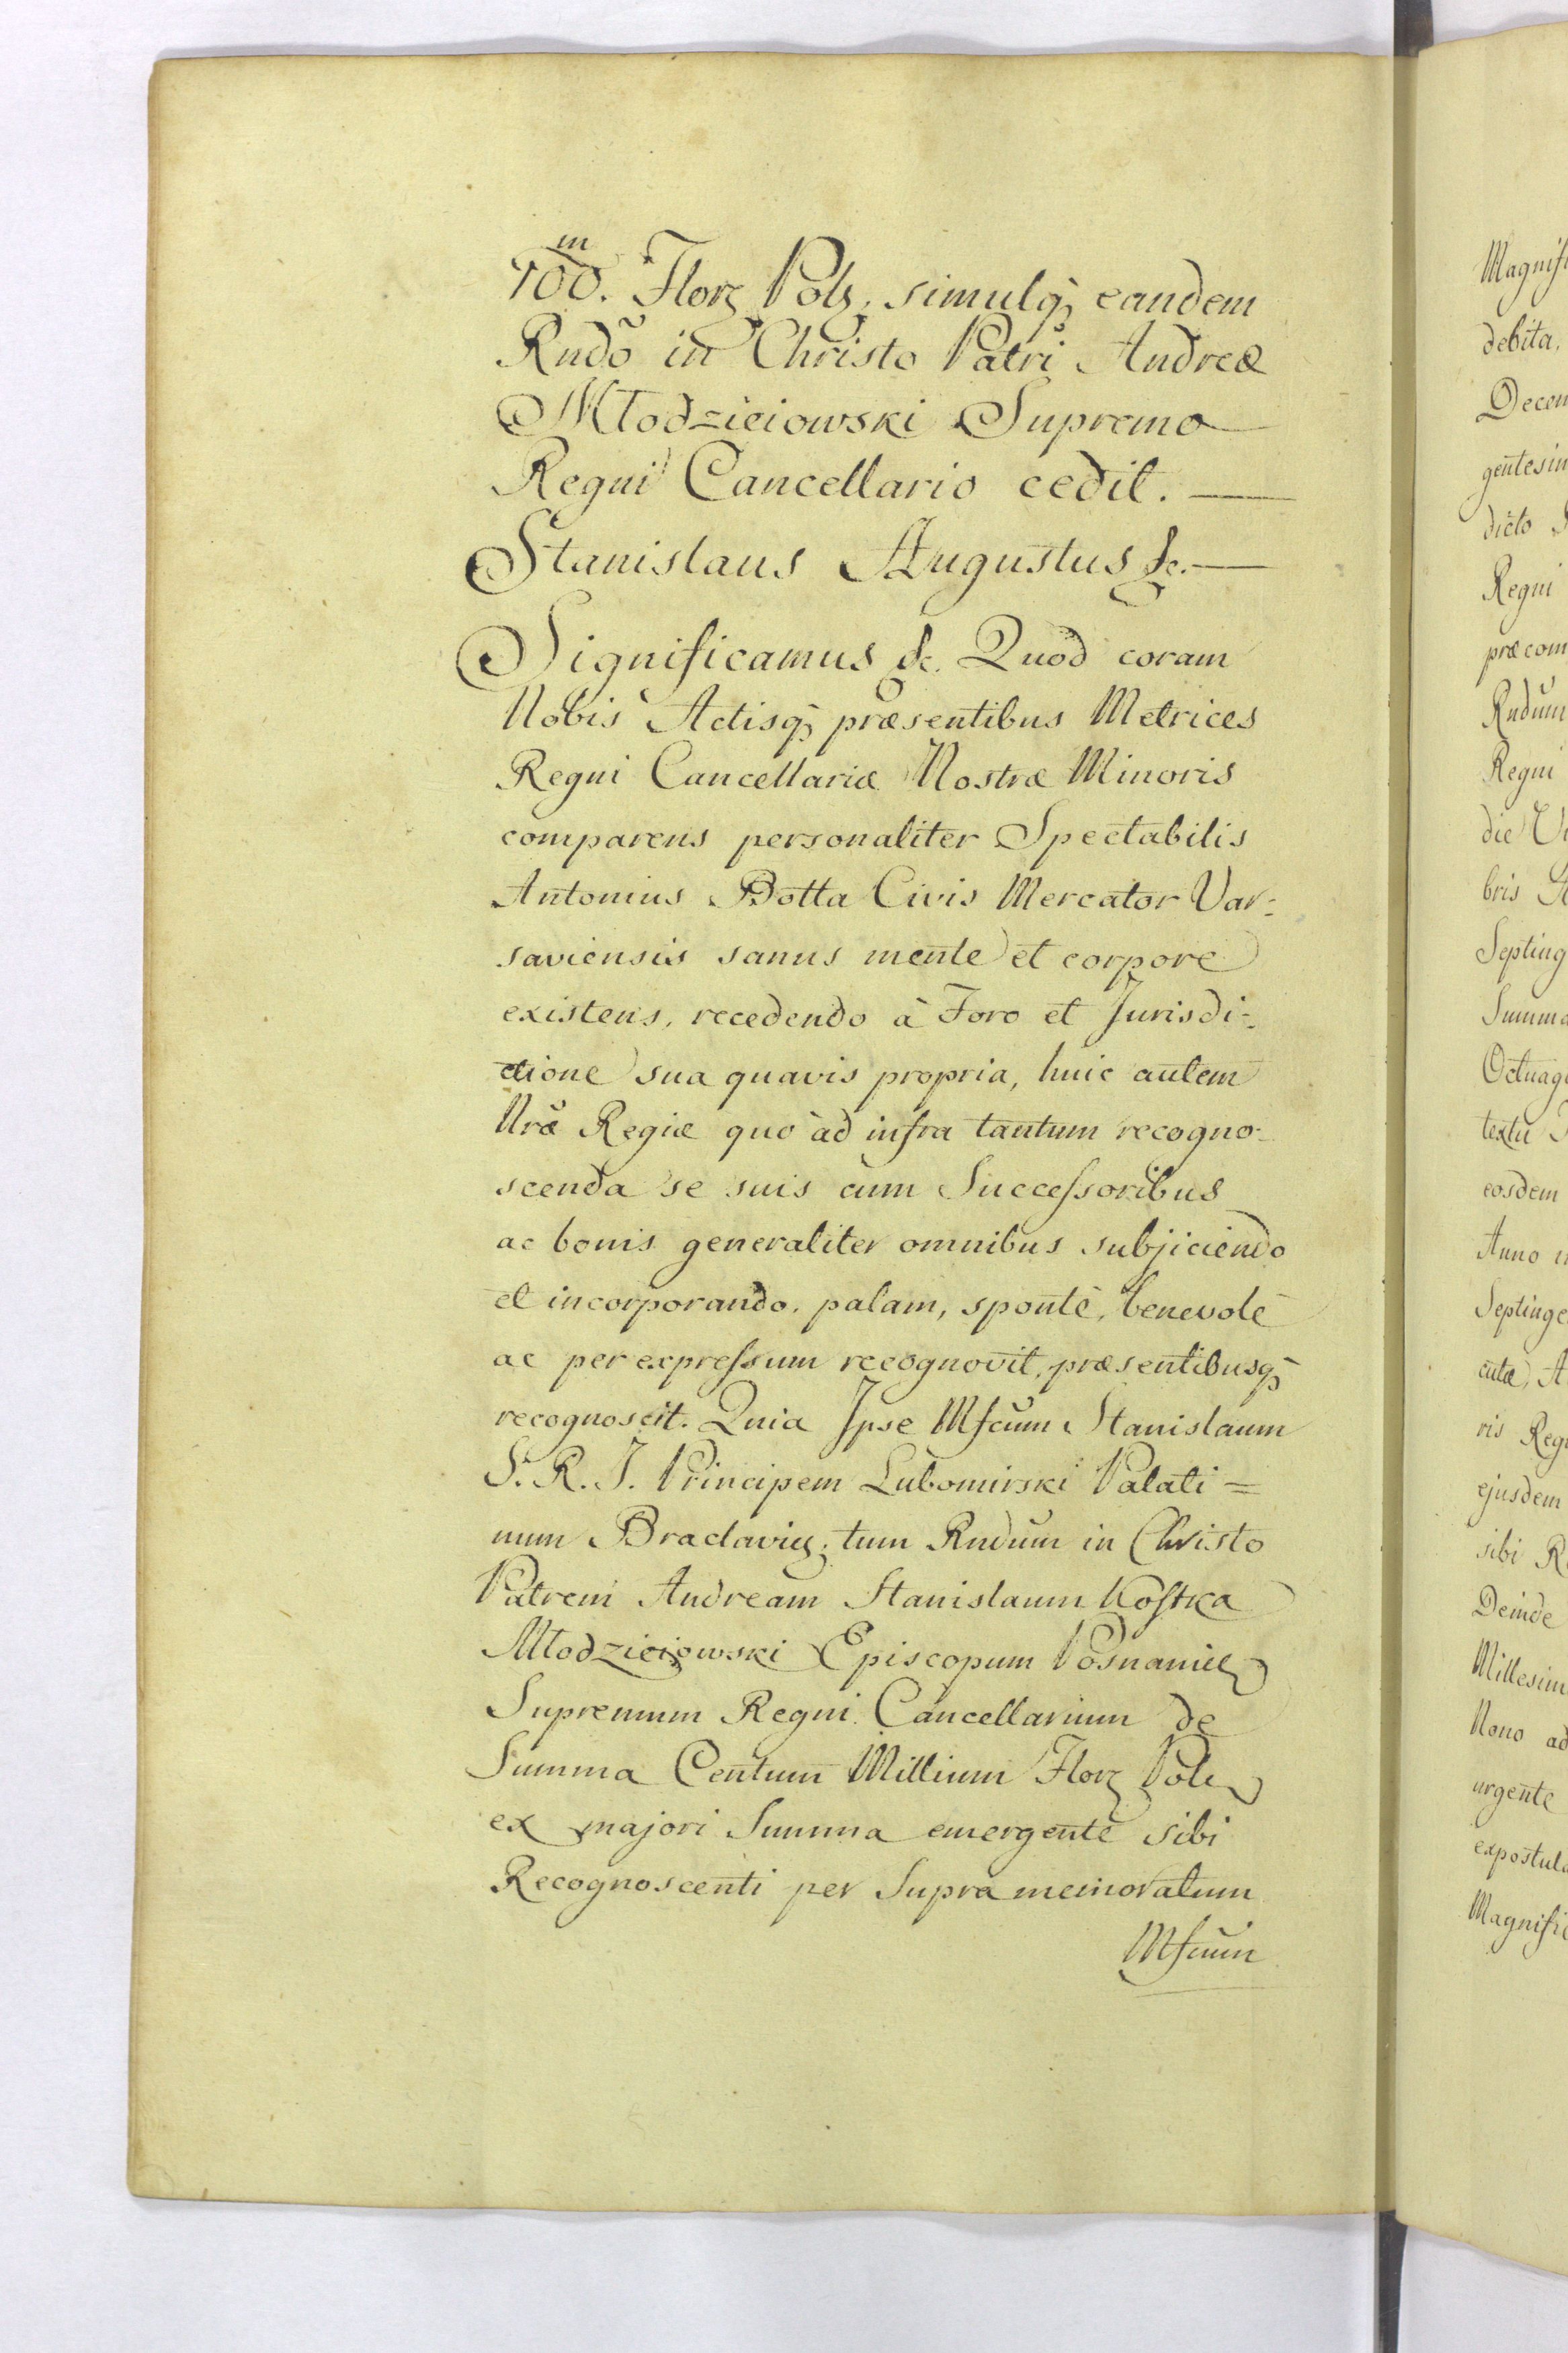 100.^m Flor Pols, simulq̃ eandem
Rndo in Christo Patri Andreæ
Młodzieiowski Supremo
Regni Cancellario cedit. —
Stanislaus Augustus &c. —
Significamus &c. Quod coram
Nobis Actisq̃ præsentibus Metrices
Regni Cancellariæ Nostræ Minoris
comparens personaliter Spectabilis
Antonius Botta Civis Mercator Var-
saviensis sanus mente et corpore
existens, recedendo à Foro et Jurisdi-
ctione sua quavis propria, huic autem
Nræ Regiæ quo ad infra tantum recogno-
scenda se suis cum Successoribus
ac bonis generaliter omnibus subjiciendo
et incorporando, palam, spontè, benevolè
ac per expressum recognovit, præsentibusq̃
recognoscit. Quia Ipse Mfcum Stanislaum
S. R. J. Principem Lubomirski Palati=
num Braclavieñ, tum Rndum in Christo
Patrem Andream Stanislaum Kostka
Młodzieiowski Episcopum Posnanieñ
Supremum Regni Cancellarium de
Summa Centum Millium Flor Pol
ex majori Summa emergente sibi
Recognoscenti per Supra memoratum
Mfcum
debita,
dicto
Regni
Rndum
Regni
bris
eosdem
Anno
ris
ejusdem
sibi
Deinde
Nono ad
urgente